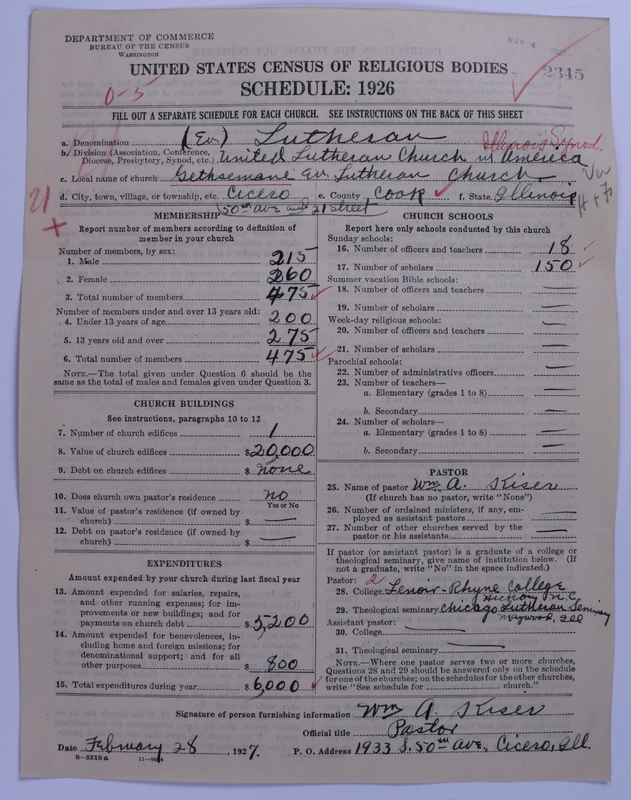 DEPARTMENT OF COMMERCE
BUREAU OF THE CENSUS
WASHINGTON
UNITED STATES CENSUS OF RELIGIOUS BODIES
2345
SCHEDULE: 1926
0-5
FILL OUT A SEPARATE SCHEDULE FOR EACH CHURCH. SEE INSTRUCTIONS ON THE BACK OF THIS SHEET
a. Denomination (Ev.) Lutheran
Illinois Synod.
b. Division (Association, Conference, Diocese, Presbytery, Synod, etc.) United Lutheran Church in America
c. Local name of church Gethsemane Ev. Lutheran Church
d. City, town, village, or township, etc. Cicero e. County Cook f. State Illinois
50th Ave and 21 Street
21
MEMBERSHIP
Report number of members according to definition of member in your church
Number of members, by sex:
1. Male 215
2. Female 260
3. Total number of members 475
Number of members under and over 13 years old:
4. Under 13 years of age 200
5. 13 years old and over 275
6. Total number of members 475
NOTE.—The total given under Question 6 should be the same as the total of males and females given under Question 3.
CHURCH BUILDINGS
See instructions, paragraphs 10 to 12
7. Number of church edifices 1
8. Value of church edifices $20,000
9. Debt on church edifices $ none
10. Does church own pastor's residence no
Yes or No
11. Value of pastor's residence (if owned by church) $ —
12. Debt on pastor's residence (if owned by church) $ —
EXPENDITURES
Amount expended by your church during last fiscal year
13. Amount expended for salaries, repairs, and other running expenses; for improvements or new buildings; and for payments on church debt $5,200
14. Amount expended for benevolences, including home and foreign missions; for denominational support; and for all other purposes $ 800
15. Total expenditures during year $ 6,000
CHURCH SCHOOLS
Report here only schools conducted by this church
Sunday schools:
16. Number of officers and teachers 18
17. Number of scholars 150
Summer vacation Bible schools:
18. Number of officers and teachers —
19. Number of scholars —
Week-day religious schools:
20. Number of officers and teachers —
21. Number of scholars —
Parochial schools:
22. Number of administrative officers —
23. Number of teachers—
a. Elementary (grades 1 to 8) —
b. Secondary —
24. Number of scholars—
a. Elementary (grades 1 to 8) —
b. Secondary —
PASTOR
25. Name of pastor Wm A. Kiser
(If church has no pastor, write "None")
26. Number of ordained ministers, if any, employed as assistant pastors —
27. Number of other churches served by the pastor or his assistants —
If pastor (or assistant pastor) is a graduate of a college or theological seminary, give name of institution below. (If not a graduate, write "No" in the space indicated.)
Pastor: 2
28. College Lenoir-Rhyne College
Hickory N.C.
29. Theological seminary Chicago Lutheran Seminary
Maywood, Ill
Assistant pastor:
30. College —
31. Theological seminary —
NOTE.—Where one pastor serves two or more churches, Questions 28 and 29 should be answered only on the schedule for one of the churches; on the schedules for the other churches, write "See schedule for church."
Signature of person furnishing information Wm A. Kiser
Official title Pastor
Date February 28, 1927. P. O. Address 1933 S. 50th Ave, Cicero, Ill.
6—5518a